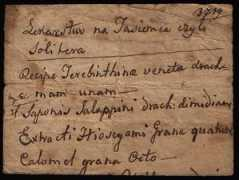 Lekarstwo na Tasiemca czyli
Solitera
Recipe Terebinthina veneta drach
mam unam
Saponis Jalappini drach: dimidiam
Extracti Hioscyami Grana quatuor
Calomel grana Octo